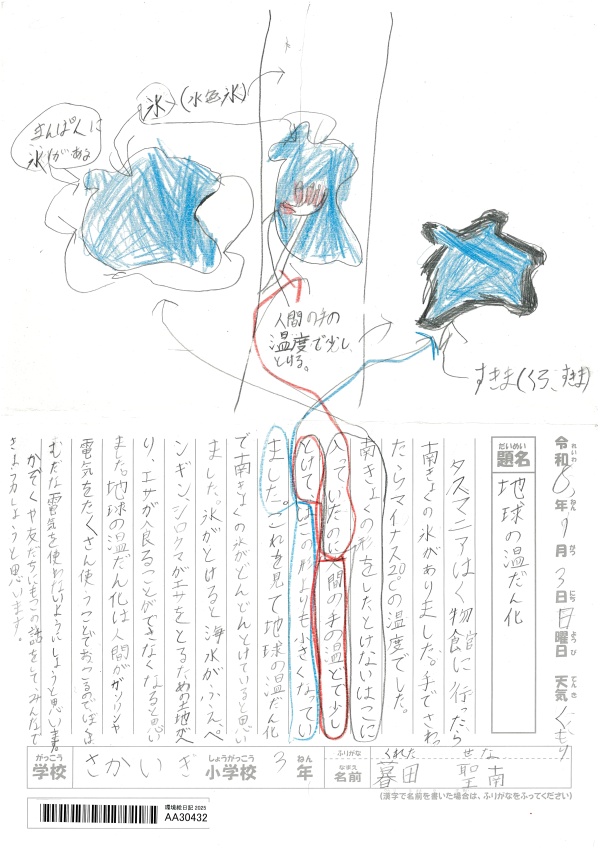 氷(水色氷)
まんぱんに
氷がある
人間の手の
温度で少し
とける。
すきま(くろ、すきま)
令和 年 9月3日 日曜日 天気 くもり
題名 地球の温だん化
タスマニアはく物館に行ったら
南きょくの氷がありました。手でさわっ
たらマイナス20°の温度でした。
南きょくの形をしたとけないはこに
入っていたのに人間の手の温どで少し
とけて、 の形よりも小さくなってい
ました。これを見て地球の温だん化
で南きょくの氷がどんどんとけていると思い
ました。氷がとけると海水がふえ、ペ
ンギン、シロクマがエサをとるための地面が
り、エサが食ることができなくなると思い
ました。地球の温だん化は人間がガソリンや
電気をたくさん使うことでおこるので、ぼくは
むだな電気を使わないようにしようと思います。
かぞくや友だちにもこの話をしてみんなで
きょう力しようと思います。
学校 さかいぎ 小学校 3年 名前 暮田 聖南
がっこう しょうがっこう ねん ふりがな くれた せな
(漢字で名前を書いた場合は、ふりがなをふってください)
環境絵日記 2025
AA30432